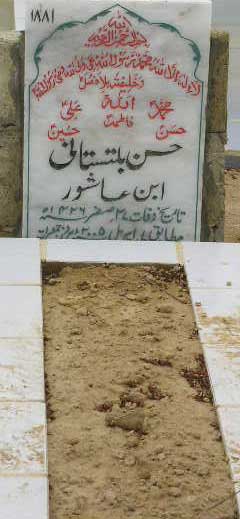 ۱۸۸۱
اللہ
بسم اللہ الرحمن الرحیم
لا الہ الا اللہ محمد رسول اللہ علی ولی اللہ وصی رسول اللہ
و خلیفتہ بلا فصل
محمدؐ اللہ علیؑ
فاطمہؑ
حسنؑ حسینؑ
حسن بلتستانی
ابن عاشور
تاریخ وفات ۲۷ صفر ۱۴۲۶ھ
مطابق اپریل ۲۰۰۵ بروز جمعرات